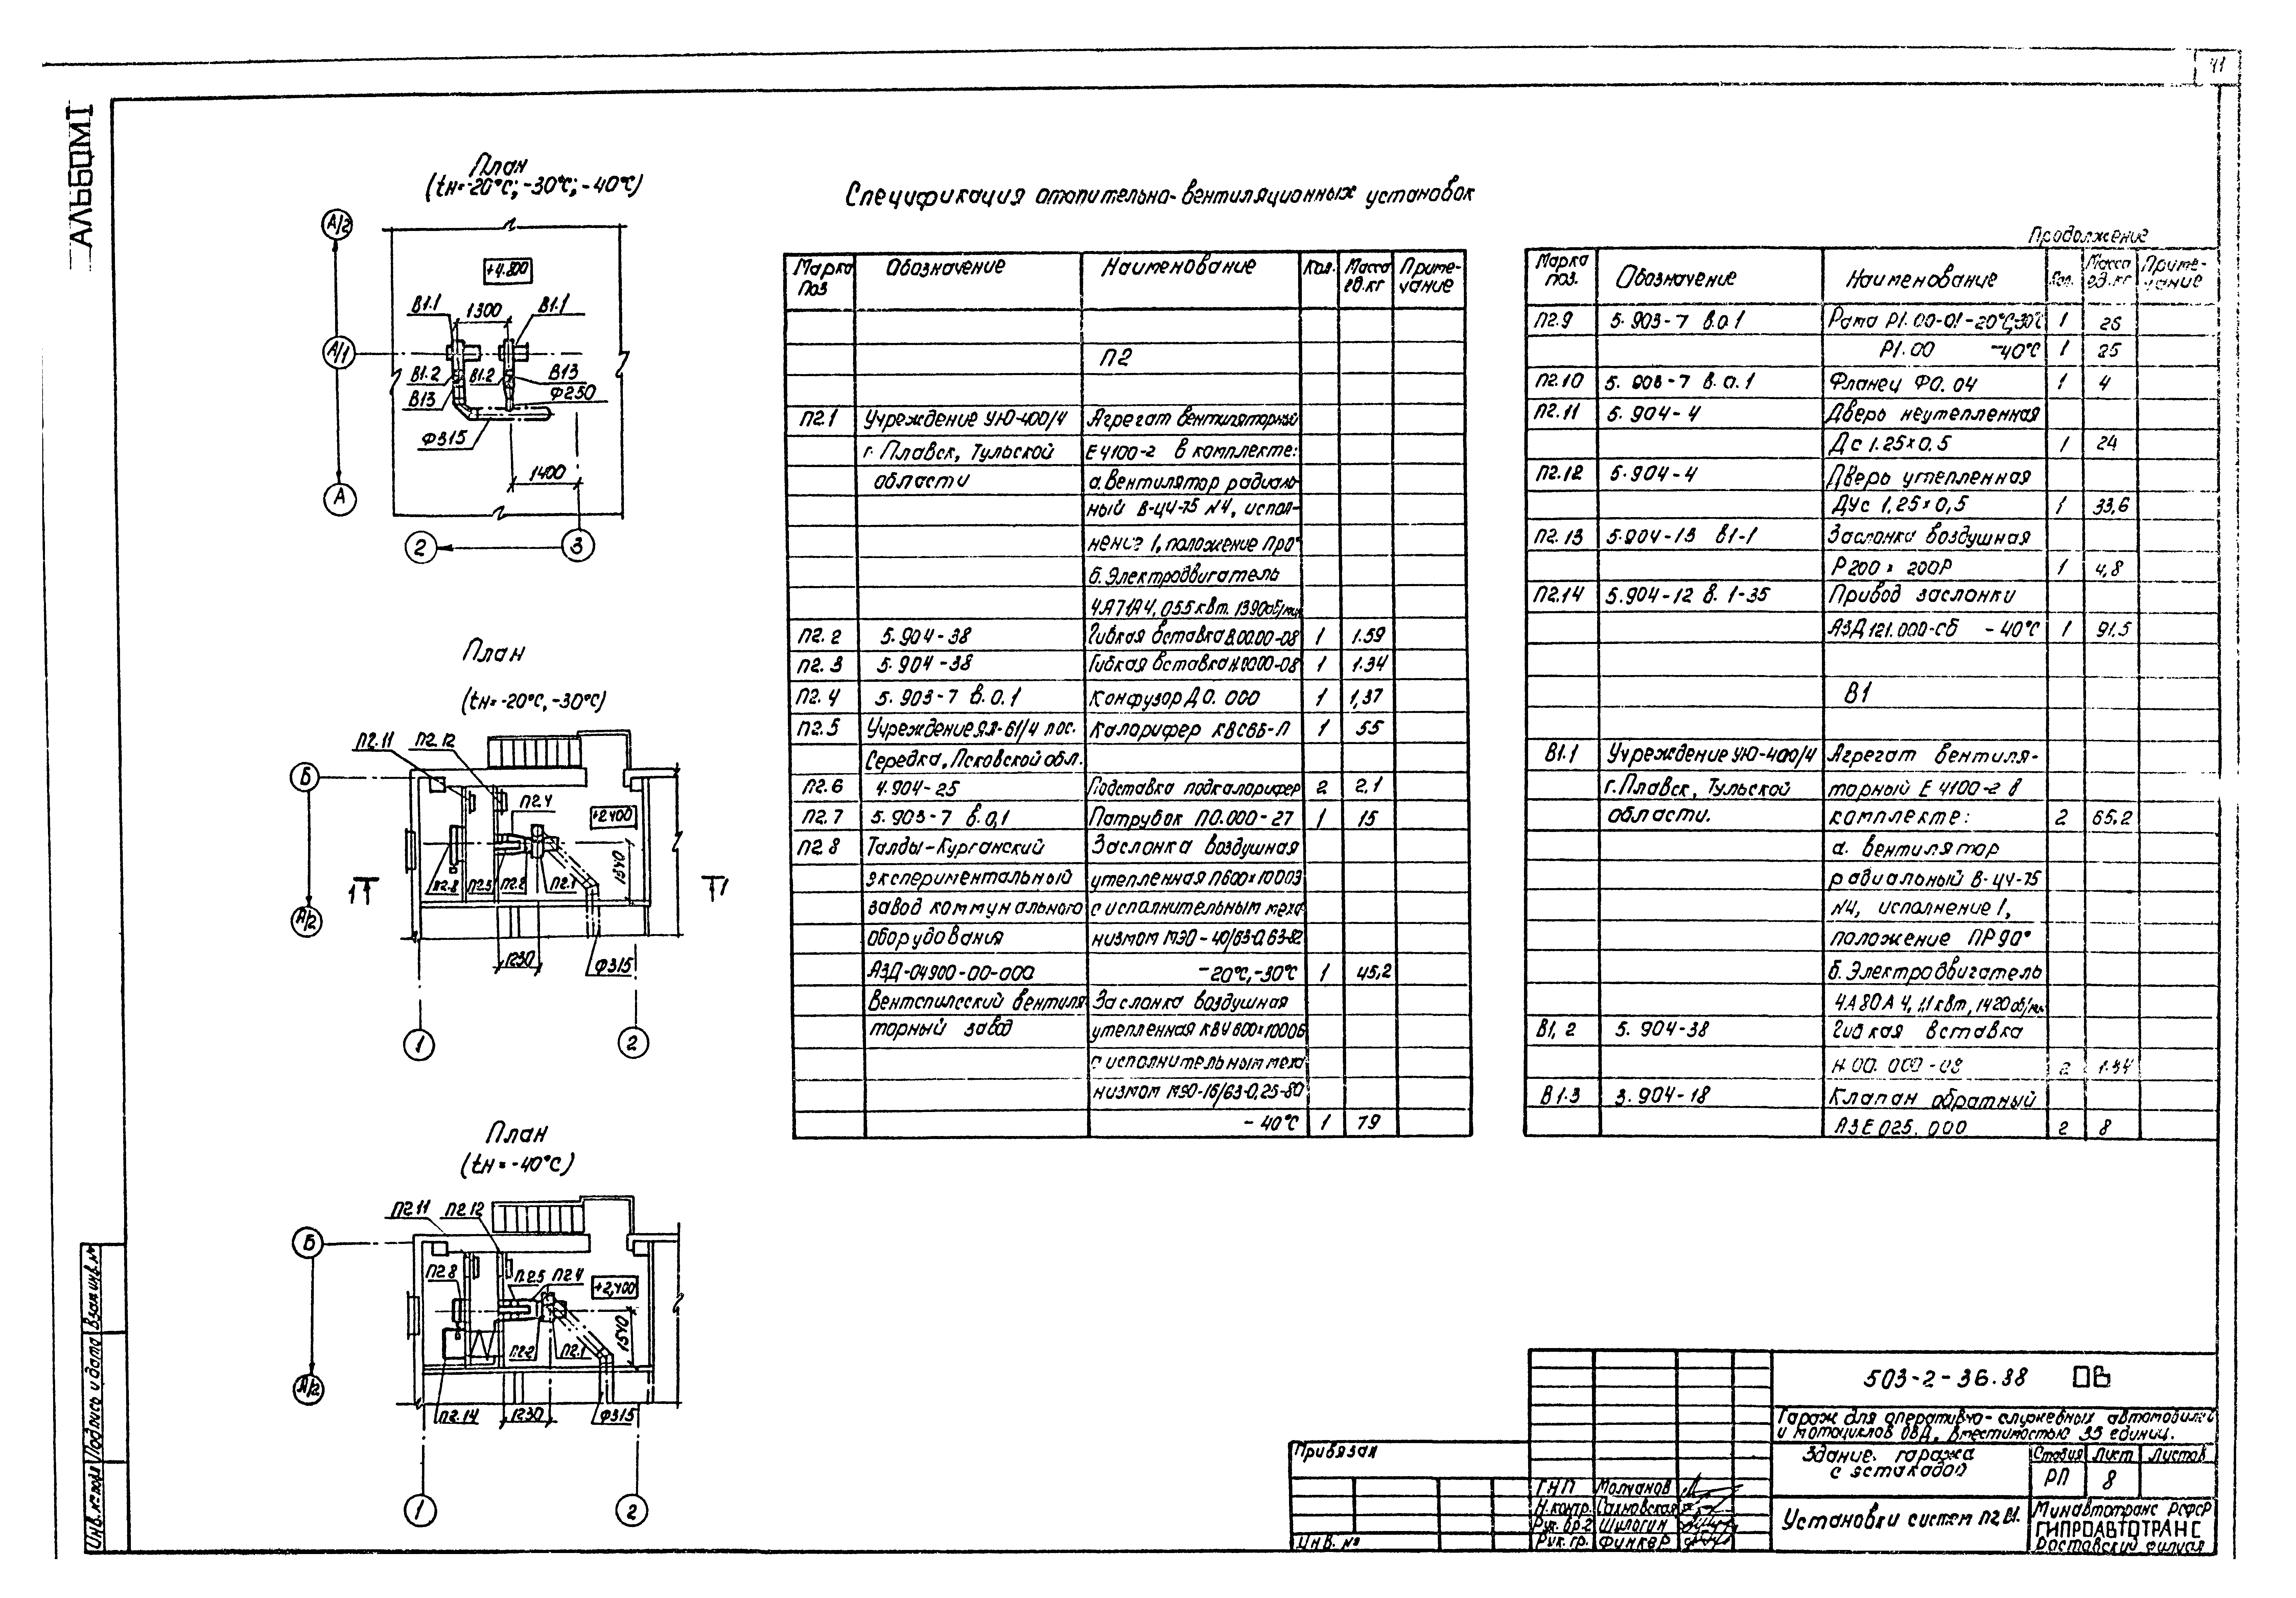 41
АЛЬБОМ I
План
(tн=-20°С; -30°С; -40°С)
А/2
+4.800
В1.1
1300
В1.1
А/1
В1.2
В1.2
В13
В13
Ф250
Ф315
1400
А
2
3
План
(tн=-20°С, -30°С)
П2.11
П2.12
Б
П2.4
+2400
1540
1
П2.8
П2.5
П2.2
П2.1
1
А/2
1230
Ф315
1
2
План
(tн=-40°С)
П2.11
П2.12
Б
П2.8
П2.5
П2.4
+2,400
1540
П2.2
П2.1
А/2
П2.14
1230
Ф315
1
2
Спецификация отопительно-вентиляционных установок
Марка Поз
Обозначение
Наименование
Кол.
Масса ед.кг
Примечание
П2
П2.1 Учреждение УЮ-400/4 Агрегат вентиляторный
г. Плавск, Тульской Е4100-2 в комплекте:
области а.Вентилятор радиаль
ный В-Ц4-75 N4, испол-
нение 1, положение Про°
б. Электродвигатель
4А71А4, 055 квт. 1390об/мин
П2.2 5.904-38 Гибкая вставка В.00.00-08 1 1.59
П2.3 5.904-38 Гибкая вставка Н.0000-08 1 1.34
П2.4 5.903-7 в.0.1 Конфузор Д0.000 1 1,37
П2.5 Учреждение ЯЛ-61/4 пос. Калорифер КВС6Б-П 1 55
Середка, Псковской обл.
П2.6 4.904-25 Подставка подкалорифер 2 2,1
П2.7 5.903-7 в.0,1 Патрубок П0.000-27 1 15
П2 8 Талды-Курганский Заслонка воздушная
экспериментальный утепленная П600х1000Э
завод коммунального с исполнительным меха
оборудования низмом МЭО-40/63-0,63-82
АЗД-04900-00-000 -20°С,-30°С 1 45,2
Вентспилсский вентиля Заслонка воздушная
торный завод утепленная КВЧ 600х1000Б
с исполнительным меха
низмом МЭО-16/63-0,25-80
-40°С 1 79
Продолжение
Марка поз.
Обозначение
Наименование
Кол.
Масса ед.кг
Примечание
П2.9 5.903-7 в.0.1 Рама Р1.00-01-20°С,-30°С 1 25
Р1.00 -40°С 1 25
П2.10 5.903-7 в.0.1 Фланец Ф0.04 1 4
П2.11 5.904-4 Дверь неутепленная
Дс 1.25х0.5 1 24
П2.12 5.904-4 Дверь утепленная
ДУс 1,25х0,5 1 33,6
П2.13 5.904-13 в1-1 Заслонка воздушная
Р200х200Р 1 4,8
П2.14 5.904-12 в. 1-35 Привод заслонки
АЗД121.000-СБ -40°С 1 91.5
В1
В1.1 Учреждение УЮ-400/4 Агрегат вентиля-
г. Плавск, Тульской торный Е 4100-2 в
области. комплекте: 2 65,2
а. вентилятор
радиальный В-Ц4-75
N4, исполнение 1,
положение ПР90°
б. Электродвигатель
4А80А4, 1,1квт, 1420об/мин
В1,2 5.904-38 Гибкая вставка
Н.00.000-08 2 1.34
В1.3 3.904-18 Клапан обратный
АЗЕ025.000 2 8
Инв.№ подл Подпись и дата Взам инв.№
503-2-36.88 ОВ
Гараж для оперативно-служебных автомобилей
и мотоциклов ОВД, вместимостью 35 единиц.
Здание гаража
с эстакадой
Стадия Лист Листов
РП 8
Установки систем П2, В1.
Минавтотранс РСФСР
ГИПРОАВТОТРАНС
Ростовский филиал
Привязан
Инв. №
ГИП Молчанов
Н.контр. Сахновская
Рук. бр-2 Шилогин
Рук. гр. Финкер